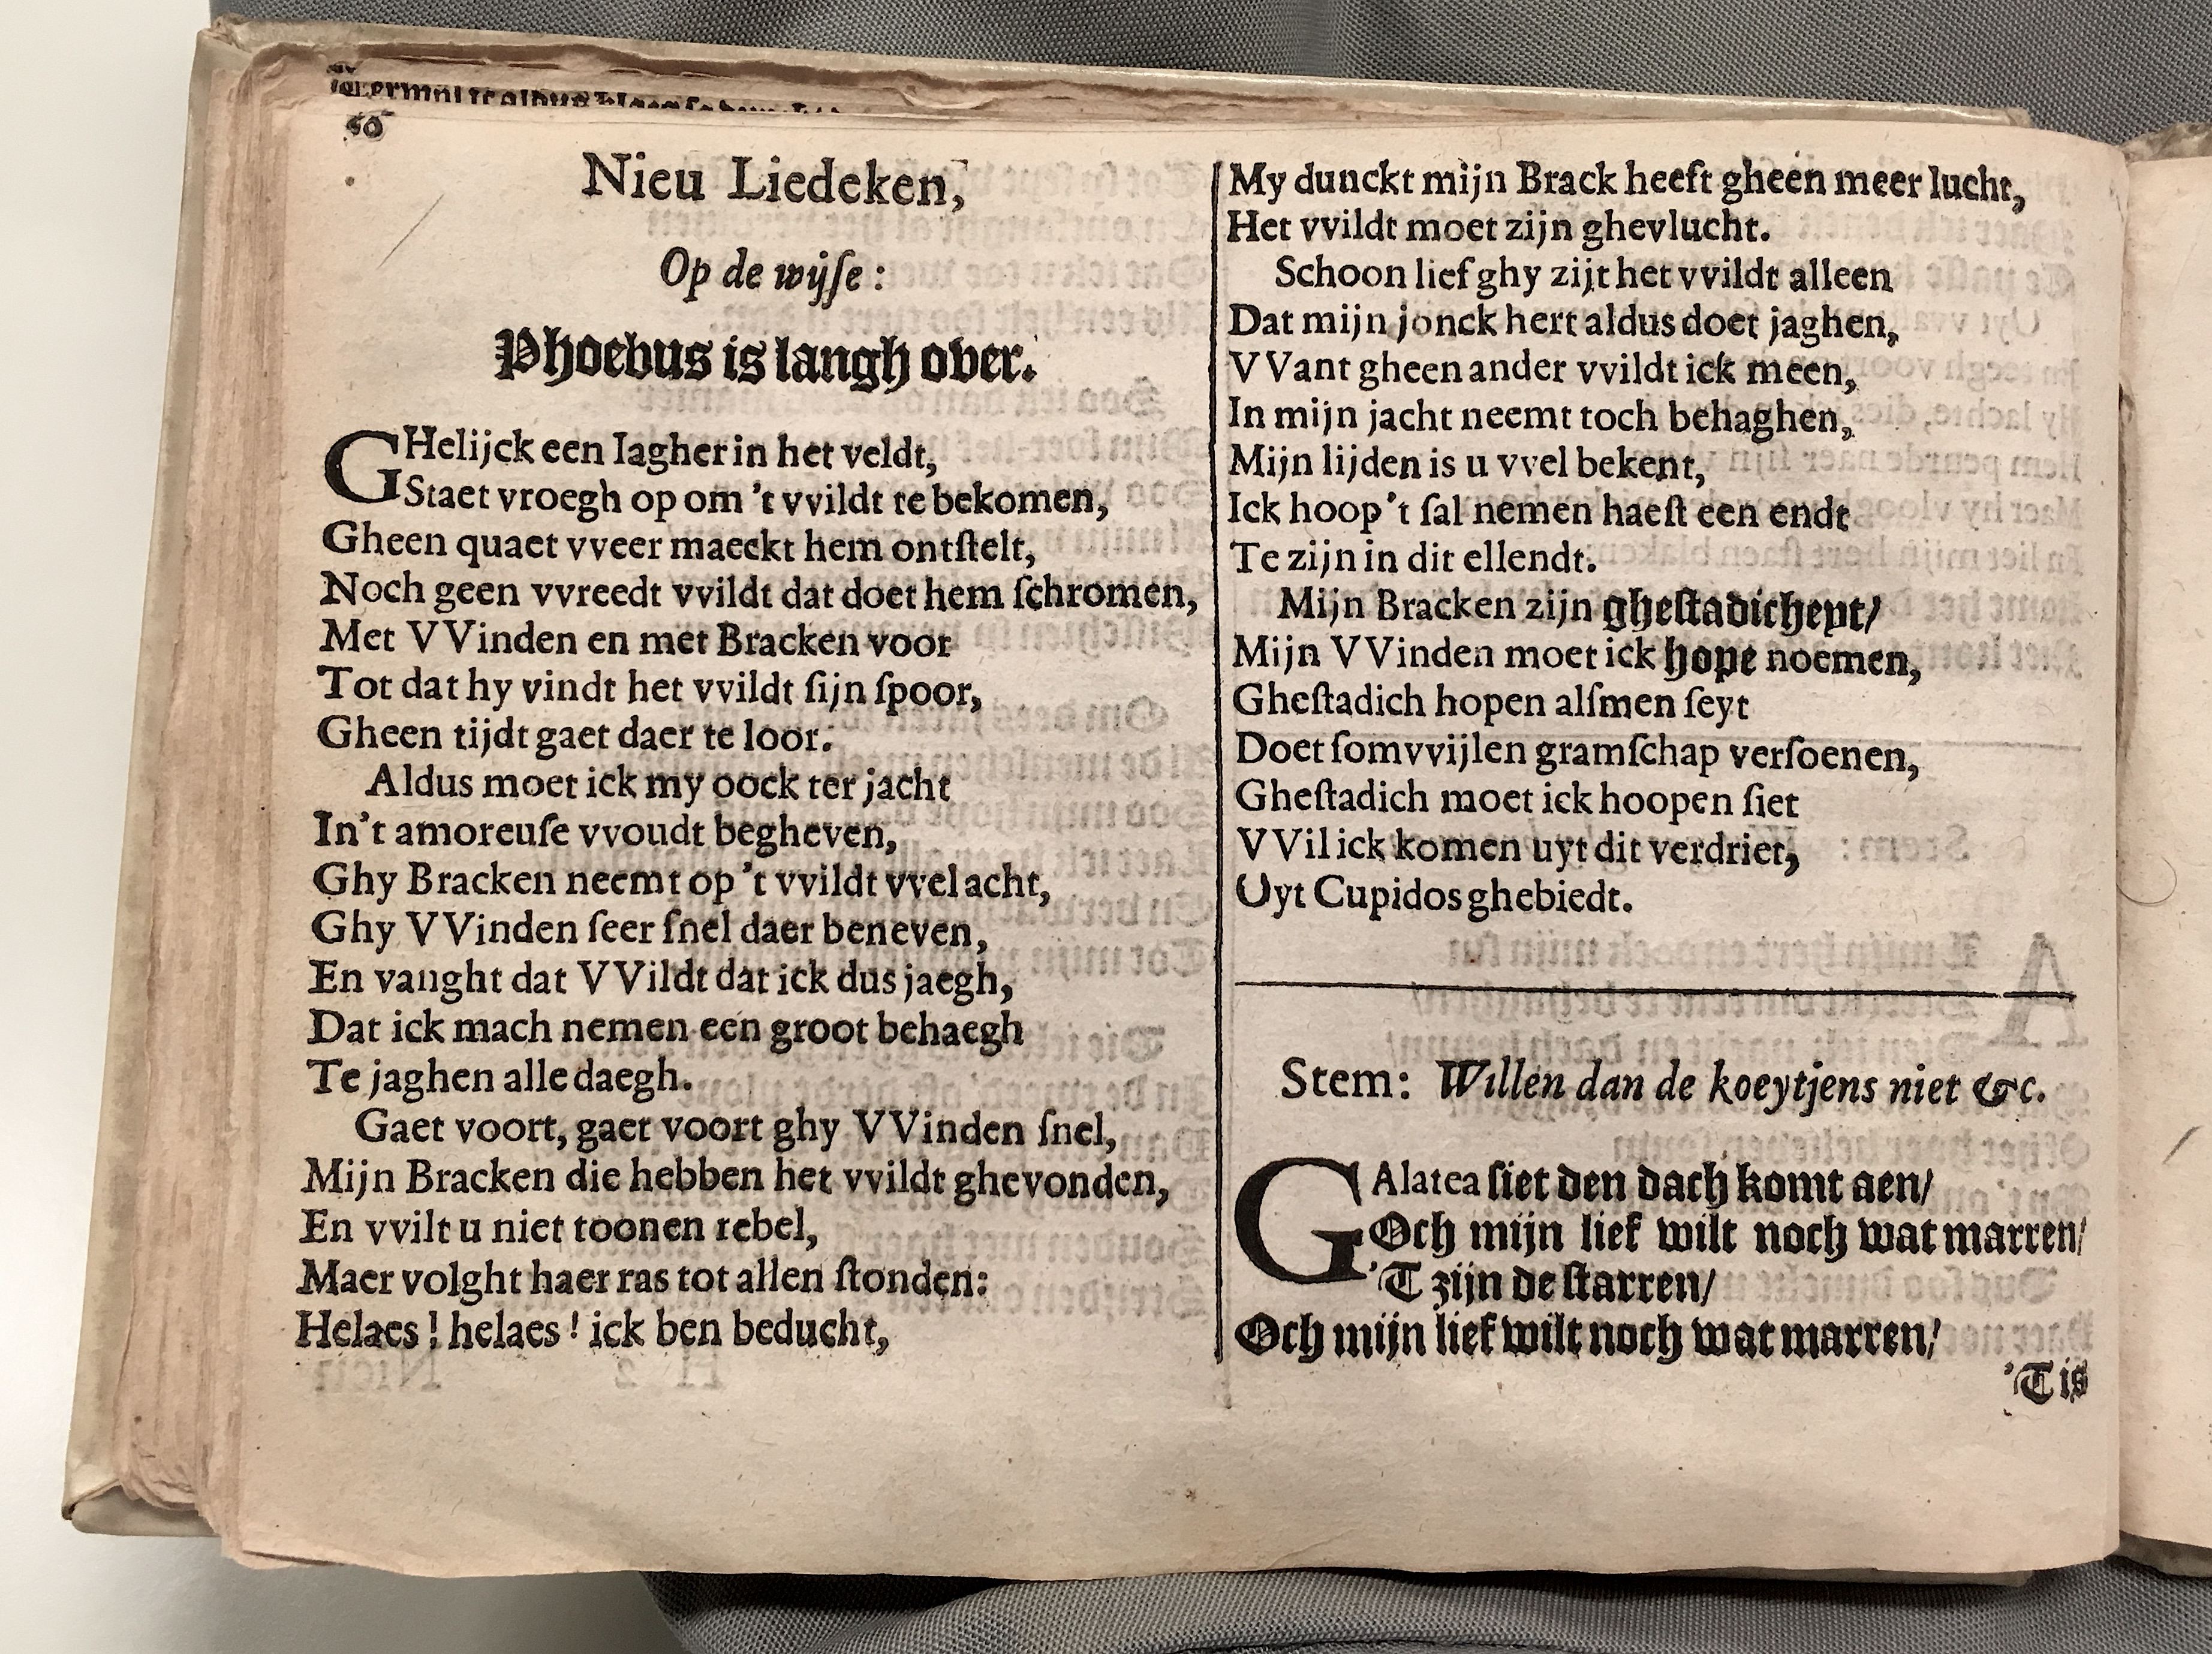 60
Nieu Liedeken,
Op de wijſe:
Phoebus is langh over.
GHelijck een Iagher in het veldt,
Staet vroegh op om 't vvildt te bekomen,
Gheen quaet vveer maeckt hem ontſtelt,
Noch geen vvreedt vvildt dat doet hem ſchromen,
Met VVinden en met Bracken voor
Tot dat hy vindt het vvildt ſijn ſpoor,
Gheen tijdt gaet daer te loor.
Aldus moet ick my oock ter jacht
In't amoreuſe vvoudt begheven,
Ghy Bracken neemt op 't vvildt vvel acht,
Ghy VVinden ſeer ſnel daer beneven,
En vanght dat VVildt dat ick dus jaegh,
Dat ick mach nemen een groot behaegh
Te jaghen alle daegh.
Gaet voort, gaet voort ghy VVinden ſnel,
Mijn Bracken die hebben het vvildt ghevonden,
En vvilt u niet toonen rebel,
Maer volght haer ras tot allen ſtonden:
Helaes! helaes! ick ben beducht,
My dunckt mijn Brack heeft gheen meer lucht,
Het vvildt moet zijn ghevlucht.
Schoon lief ghy zijt het vvildt alleen
Dat mijn jonck hert aldus doet jaghen,
VVant gheen ander vvildt ick meen,
In mijn jacht neemt toch behaghen,
Mijn lijden is u vvel bekent,
Ick hoop 't ſal nemen haeſt een endt
Te zijn in dit ellendt.
Mijn Bracken zijn gheſtadicheyt/
Mijn VVinden moet ick hope noemen,
Gheſtadich hopen alſmen ſeyt
Doet ſomvvijlen gramſchap verſoenen,
Gheſtadich moet ick hoopen ſiet
VVil ick komen uyt dit verdriet,
Uyt Cupidos ghebiedt.
Stem: Willen dan de koeytjens niet &c.
GAlatea ſiet den dach komt aen/
Och mijn lief wilt noch wat marren/
'T zijn de ſtarren/
Och mijn lief wilt noch wat marren/
'T is